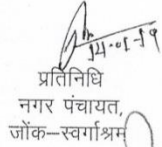 14-01-19
प्रतिनिधि
नगर पंचायत,
जोंक–स्वर्गाश्रम